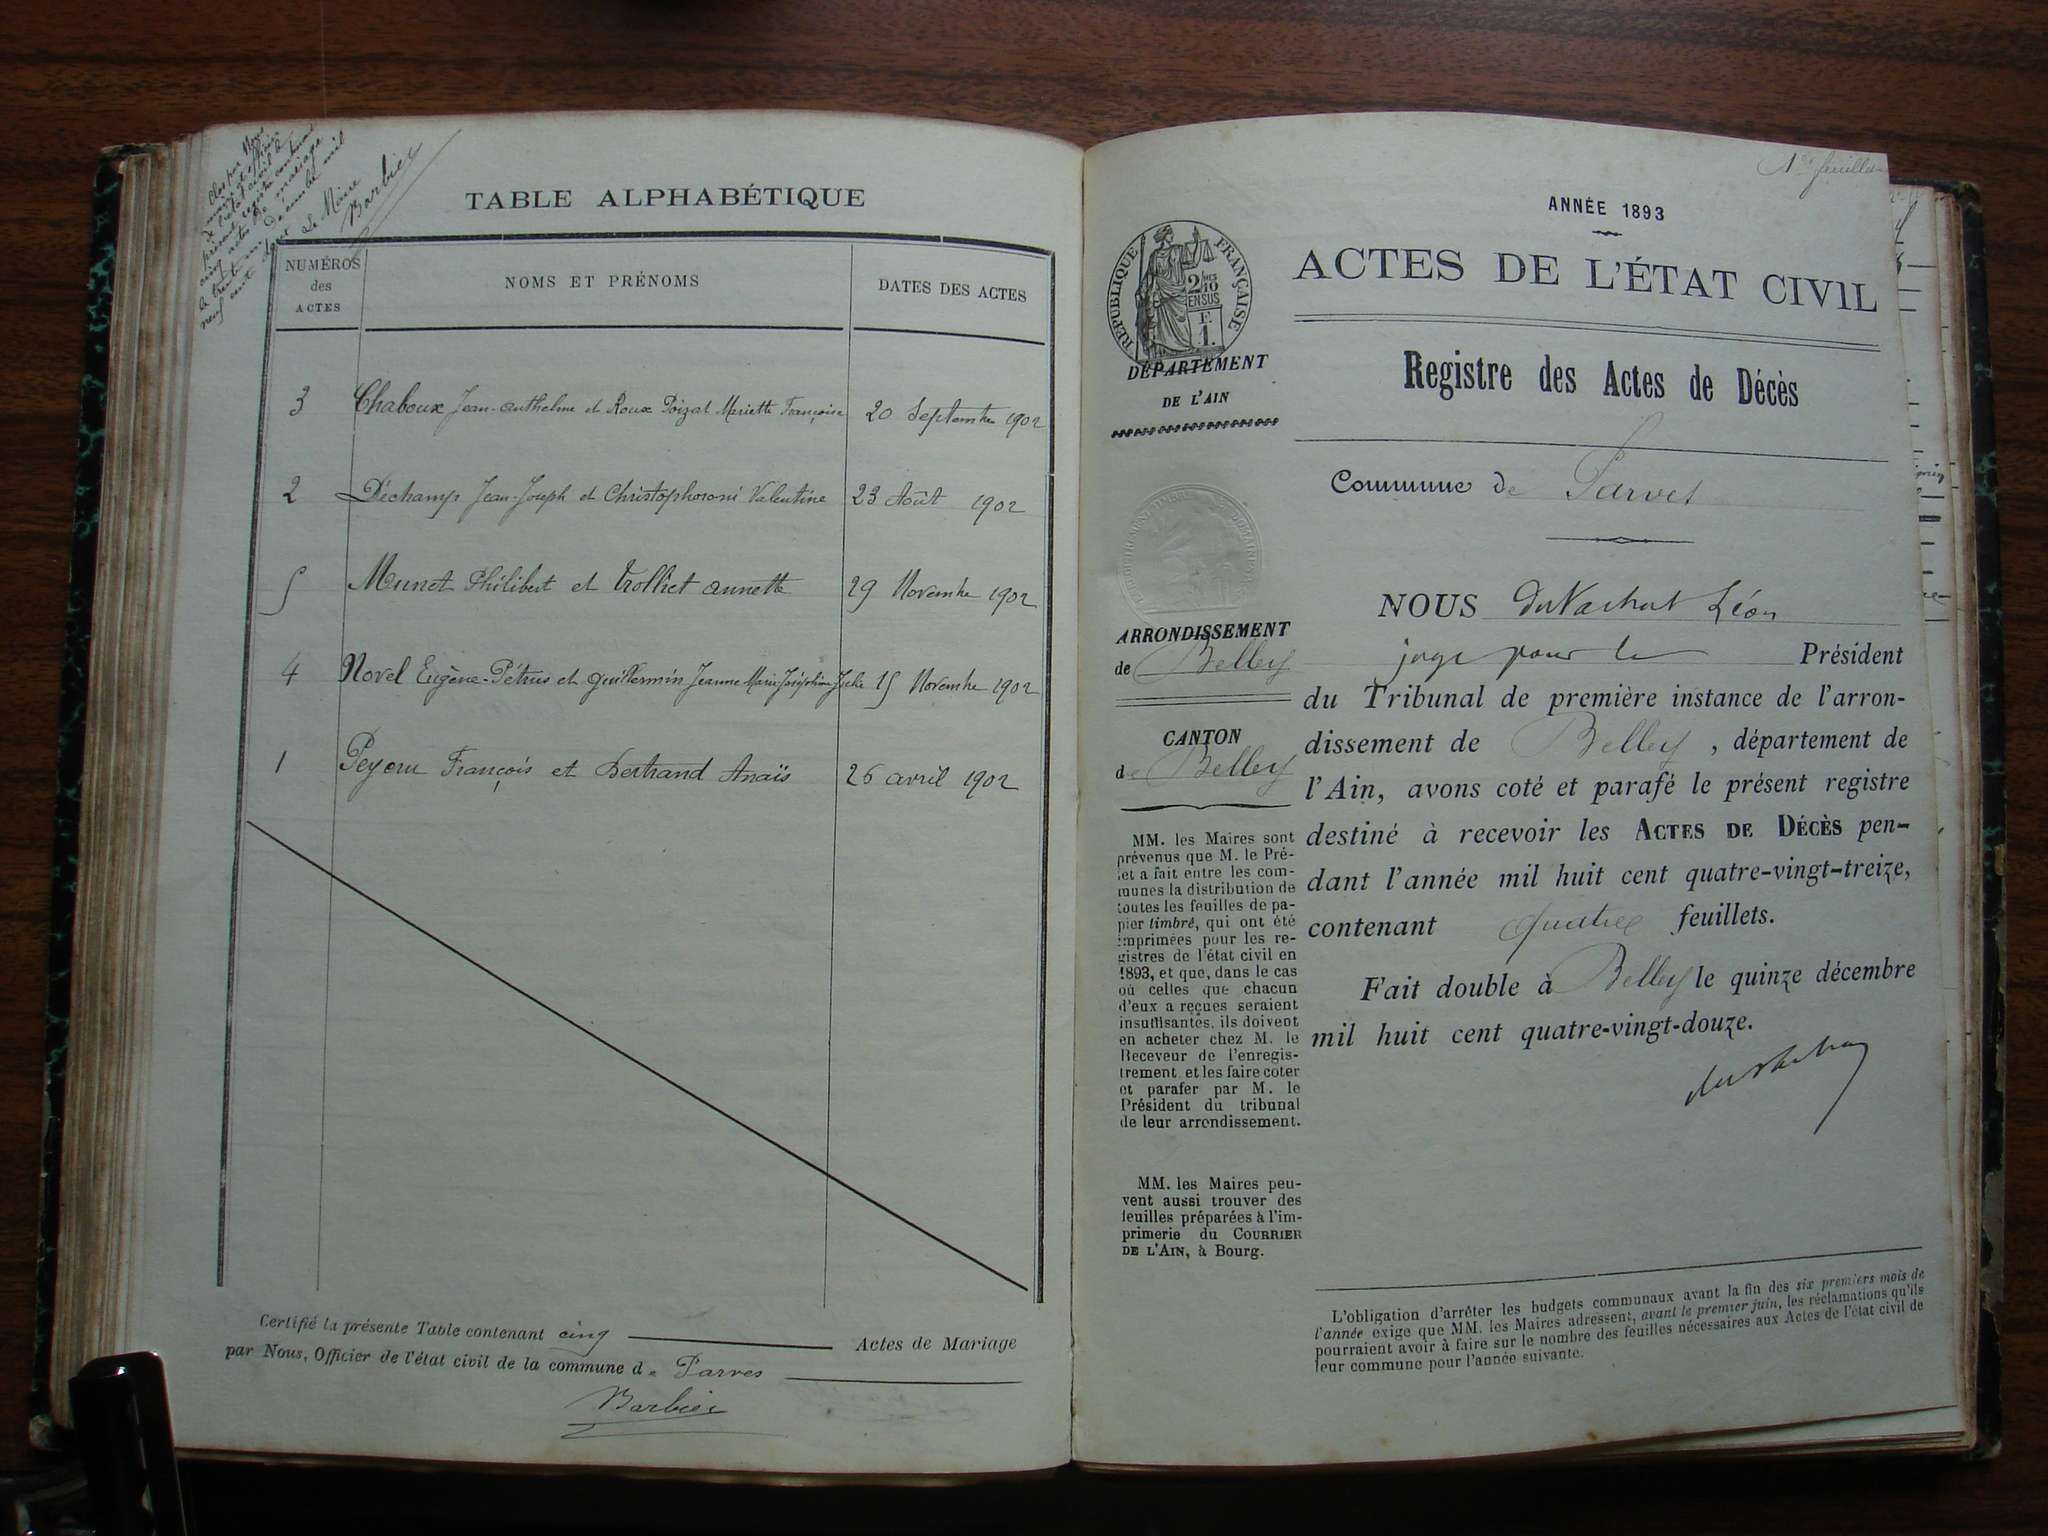 Clos par Nous
maire et officier
de l'état civil le
présent registre contenant
cinq actes de mariage
le trente un Décembre mil
neuf cent deux Le Maire
Barbier
TABLE ALPHABÉTIQUE
NUMÉROS des ACTES
NOMS ET PRÉNOMS
DATES DES ACTES
3 Chaboux Jean-Anthelme et Roux Poizat Mariette Françoise 20 Septembre 1902
2 Déchamp Jean-Joseph et Christophoroni Valentine 23 Août 1902
5 Munet Philibert et Trolliet Annette 29 Novembre 1902
4 Novel Eugène-Pétrus et Guillermin Jeanne Marie Joséphine Julie 15 Novembre 1902
1 François et Bertrand Anaïs 26 avril 1902
Certifié la présente Table contenant cinq Actes de Mariage
par Nous, Officier de l'état civil de la commune de Parves
Barbier
1er feuillet
ANNÉE 1893
ACTES DE L'ÉTAT CIVIL
Registre des Actes de Décès
Commune de Parves
RÉPUBLIQUE FRANÇAISE
2/10 EN SUS
F. 1.
DÉPARTEMENT
DE L'AIN
ARRONDISSEMENT
de Belley
CANTON
de Belley
MM. les Maires sont
prévenus que M. le Pré-
fet a fait entre les com-
munes la distribution de
toutes les feuilles de pa-
pier timbré, qui ont été
imprimées pour les re-
gistres de l'état civil en
1893, et que, dans le cas
où celles que chacun
d'eux a reçues seraient
insuffisantes, ils doivent
en acheter chez M. le
Receveur de l'enregis-
trement et les faire coter
et parafer par M. le
Président du tribunal
de leur arrondissement.
MM. les Maires peu-
vent aussi trouver des
feuilles préparées à l'im-
primerie du COURRIER
DE L'AIN, à Bourg.
NOUS duVachat Léon
juge pour le Président
du Tribunal de première instance de l'arron-
dissement de Belley, département de
l'Ain, avons coté et parafé le présent registre
destiné à recevoir les ACTES DE DÉCÈS pen-
dant l'année mil huit cent quatre-vingt-treize,
contenant quatre feuillets.
Fait double à Belley le quinze décembre
mil huit cent quatre-vingt-douze.
L'obligation d'arrêter les budgets communaux avant la fin des six premiers mois de
l'année exige que MM. les Maires adressent, avant le premier juin, les réclamations qu'ils
pourraient avoir à faire sur le nombre des feuilles nécessaires aux Actes de l'état civil de
leur commune pour l'année suivante.